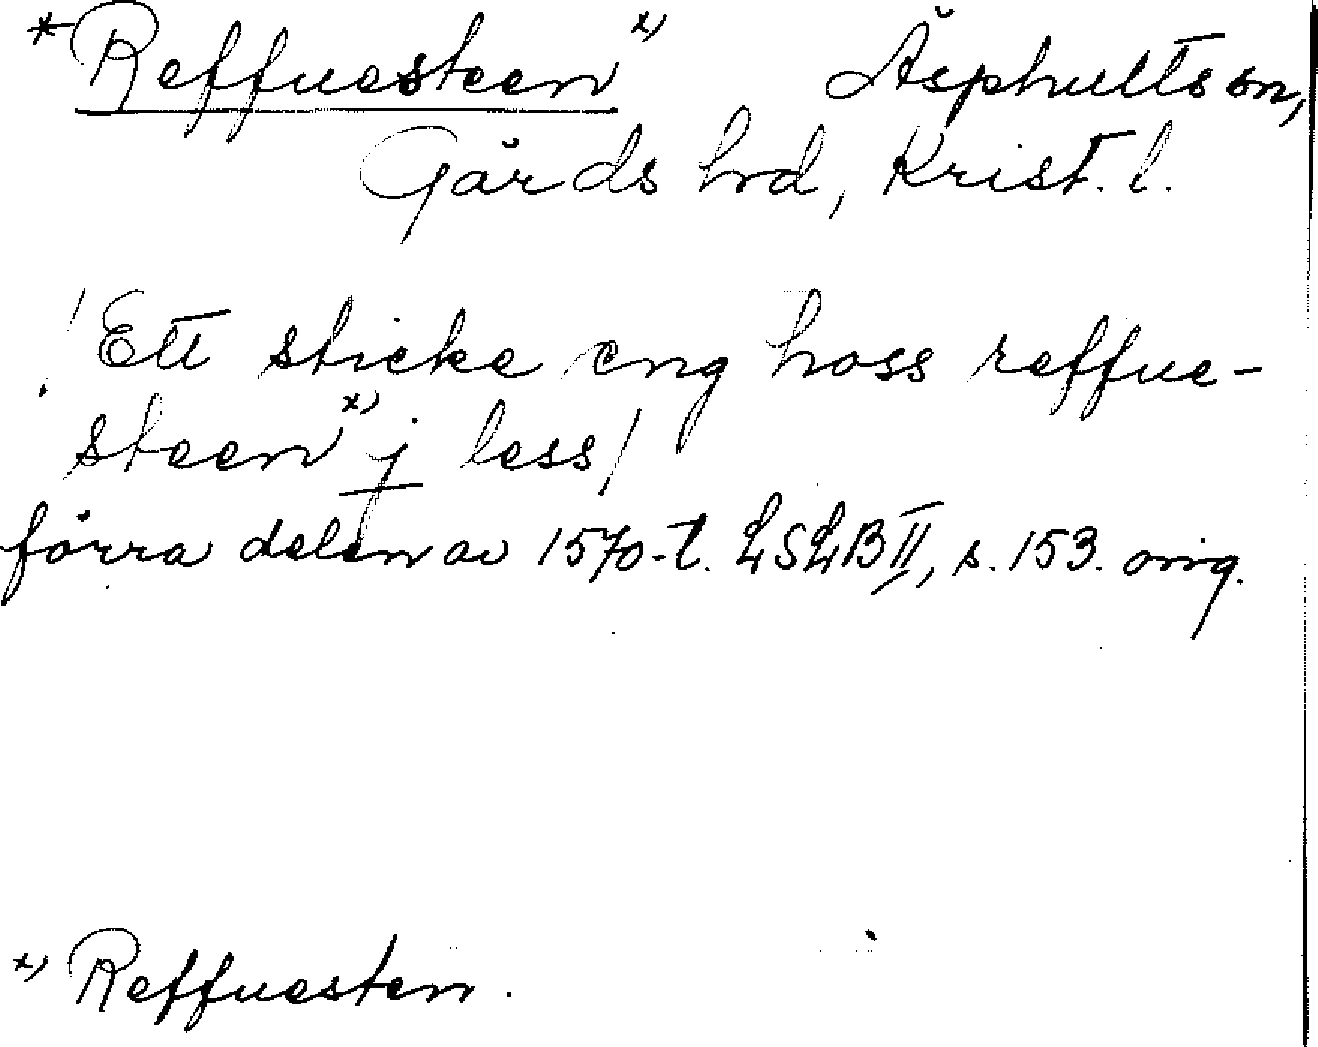 *Reffuesteen x) Äsphults sn,
Gärds hrd, Krist. l.
! Ett sticke eng hoss reffue-
steen x) j less/
förra delen av 1570-t. LSLB II, s. 153. orig.
x) Reffuesten.